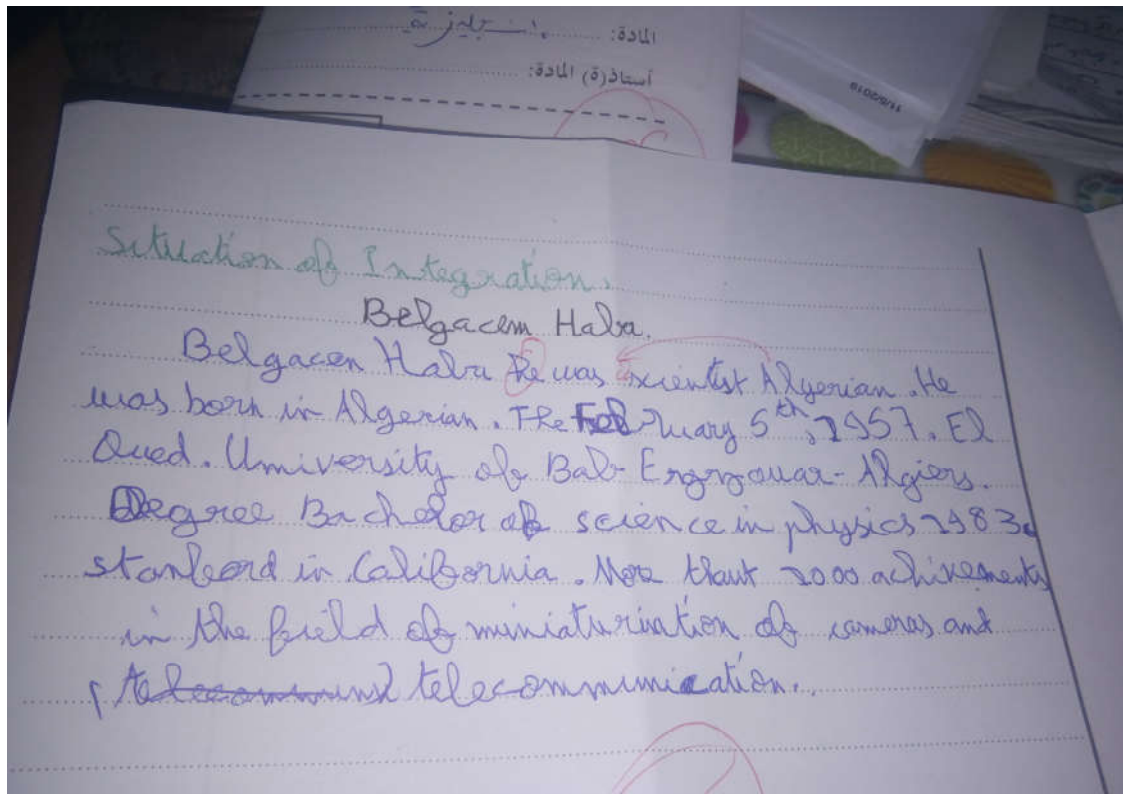 المادة: انجليزية
أستاذ(ة) المادة:
11/6/2019
Situation of Integration.
Belgacem Haba.
Belgacen Haba he was scientist Algerian. He
was born in Algerian. The February 5th, 1957. El
Oued. University of Bab-Ezzouar-Algiers.
Degree Bachelor of science in physics 1983.
stanford in California. More thant 2000 achivements
in the field of miniaturiation of cameras and
telecommunication..